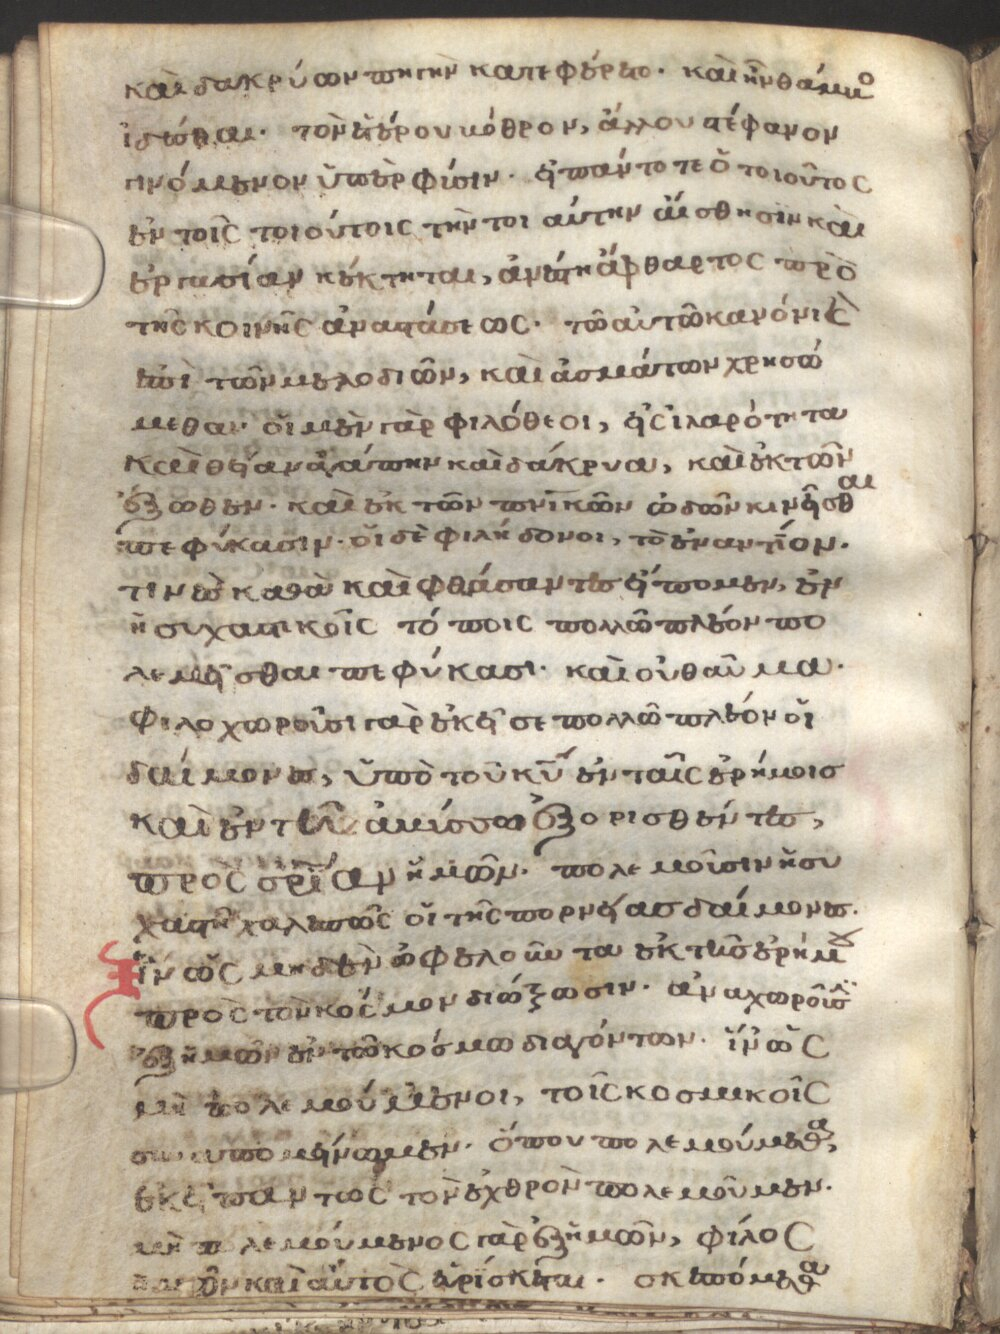 καὶ δακρύων πηγὴν κατεφέρετο· καὶ ἦν θάμβο
ἰδέσθαι· τὸν ἑτέρου βόθρον, ἄλλου στέφανον
γινόμενον ὑπὲρ φύσιν· εἰ πάντοτε ὁ τοιοῦτος
ἐν τοῖς τοιούτοις τὴν τοιαύτην αἴσθησιν καὶ
ἐργασίαν κέκτηται, ἀνέστη ἄφθαρτος πρὸ
τῆς κοινῆς ἀναστάσεως· τῶ αὐτῶ κανόνι
ἐπὶ τῶν μελοδιῶν, καὶ ἀσμάτων χρησώ
μεθα· οἱ μὲν γὰρ φιλόθεοι, εἰς ἱλαρότητα
καὶ θείαν ἀγάπην καὶ δάκρυα, καὶ ἐκ τῶν
ἔξωθεν· καὶ ἐκ τῶν πνικῶν ὠδῶν κινεῖσθαι
πεφύκασιν· οἱ δὲ φιλήδονοι, τὸ ἐναντίον·
τινὲς καθὰ καὶ φθάσαντες εἴπομεν, ἐν
ἡσυχαστικοῖς τόποις πολλῶ πλέον πο
λεμεῖσθαι πεφύκασι· καὶ οὐ θαῦμα·
φιλοχωροῦσι γὰρ ἐκεῖσε πολλῶ πλέον οἱ
δαίμονες, ὑπὸ τοῦ κυ ἐν ταῖς ἐρήμοις
καὶ ἐν τῆ ἀβύσσω ἐξορισθέντες,
πρὸς σρίαν ἡμῶν· πολεμοῦσιν ἡσυ
χαστὴν χαλεπῶς οἱ τῆς πορνείας δαίμονες·
ἵν ὡς μηδὲν ὠφελούμενον ἐκ τῆς ἐρήμου
πρὸς τὸν κόσμον διώξωσιν· ἀναχωροῦσι
ἐξ ἡμῶν ἐν τῶ κόσμω διαγόντων· ἵν ὡς
μὴ πολεμούμενοι, τοῖς κοσμικοῖς
συναπομείνωμεν· ὅπου πολεμούμεθα,
ἐκεῖ πάντως τὸν ἐχθρὸν πολεμοῦμεν·
μὴ πολεμούμενος γὰρ ἐξ ἡμῶν, φίλος
ἡμῶν καὶ αὐτὸς εὑρίσκεται· σκεπόμεθα